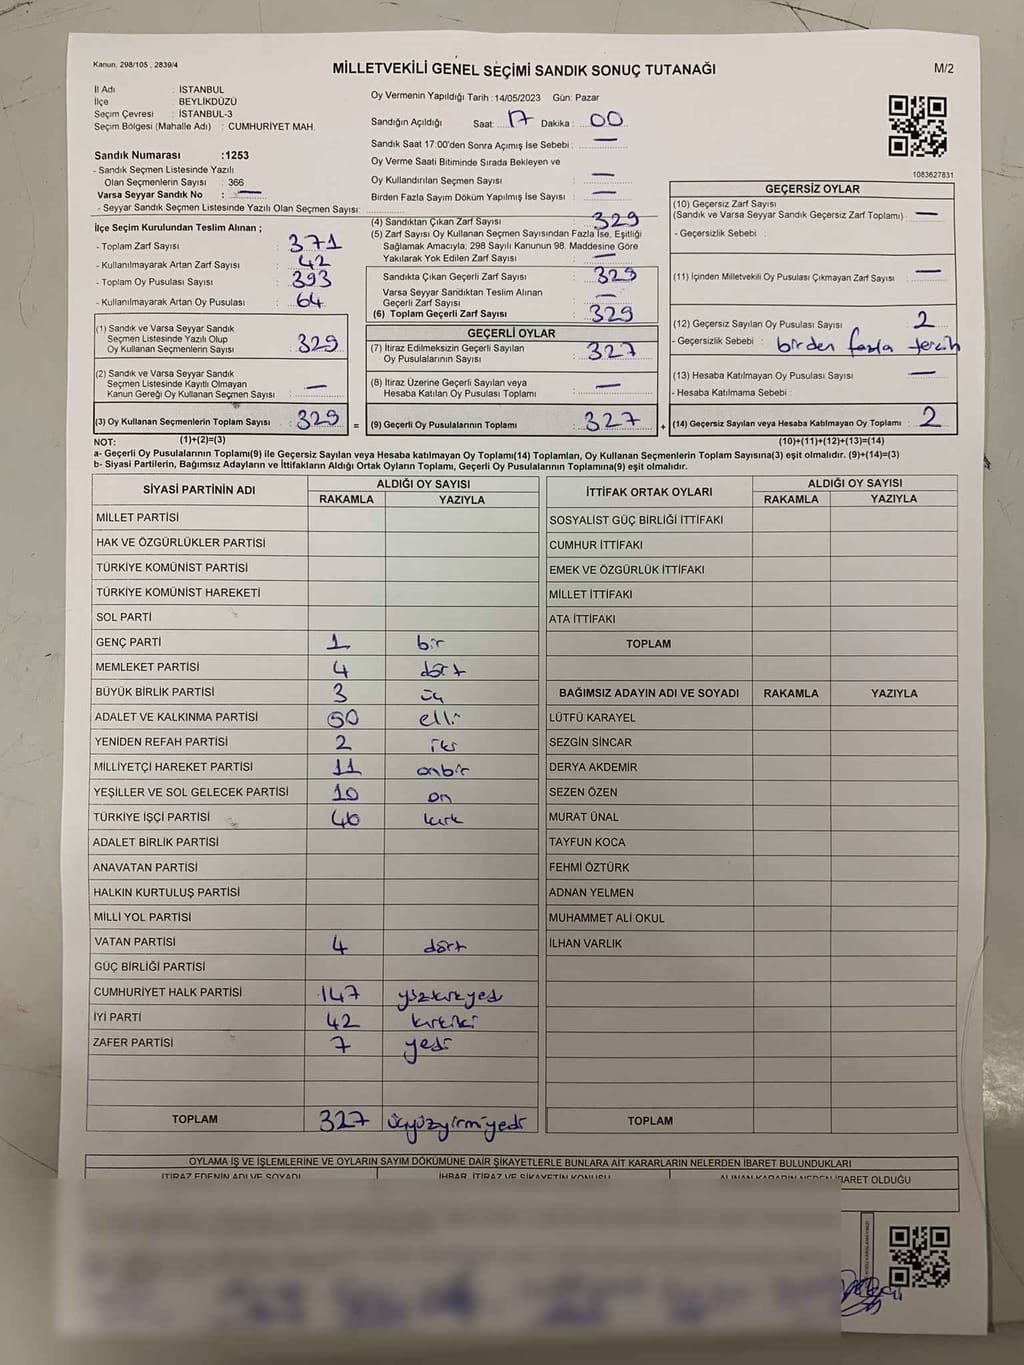 Kanun, 298/105 , 2839/4
MİLLETVEKİLİ GENEL SEÇİMİ SANDIK SONUÇ TUTANAĞI
M/2
İl Adı : İSTANBUL
İlçe : BEYLİKDÜZÜ
Seçim Çevresi : İSTANBUL-3
Seçim Bölgesi (Mahalle Adı) : CUMHURİYET MAH.
Sandık Numarası :1253
- Sandık Seçmen Listesinde Yazılı
Olan Seçmenlerin Sayısı : 366
Varsa Seyyar Sandık No : —
- Seyyar Sandık Seçmen Listesinde Yazılı Olan Seçmen Sayısı:
Oy Vermenin Yapıldığı Tarih :14/05/2023 Gün: Pazar
Sandığın Açıldığı Saat: 17 Dakika : 00
Sandık Saat 17:00'den Sonra Açımış İse Sebebi : —
Oy Verme Saati Bitiminde Sırada Bekleyen ve
Oy Kullandırılan Seçmen Sayısı : —
Birden Fazla Sayım Döküm Yapılmış İse Sayısı : —
1083627831
İlçe Seçim Kurulundan Teslim Alınan ;
- Toplam Zarf Sayısı : 371
- Kullanılmayarak Artan Zarf Sayısı : 42
- Toplam Oy Pusulası Sayısı : 393
- Kullanılmayarak Artan Oy Pusulası : 64
(1) Sandık ve Varsa Seyyar Sandık
Seçmen Listesinde Yazılı Olup
Oy Kullanan Seçmenlerin Sayısı : 329
(2) Sandık ve Varsa Seyyar Sandık
Seçmen Listesinde Kayıtlı Olmayan
Kanun Gereği Oy Kullanan Seçmen Sayısı : —
(3) Oy Kullanan Seçmenlerin Toplam Sayısı : 329
(1)+(2)=(3)
(4) Sandıktan Çıkan Zarf Sayısı : 329
(5) Zarf Sayısı Oy Kullanan Seçmen Sayısından Fazla İse, Eşitliği
Sağlamak Amacıyla; 298 Sayılı Kanunun 98. Maddesine Göre
Yakılarak Yok Edilen Zarf Sayısı : —
Sandıkta Çıkan Geçerli Zarf Sayısı : 329
Varsa Seyyar Sandıktan Teslim Alınan
Geçerli Zarf Sayısı : —
(6) Toplam Geçerli Zarf Sayısı : 329
GEÇERLİ OYLAR
(7) İtiraz Edilmeksizin Geçerli Sayılan
Oy Pusulalarının Sayısı : 327
(8) İtiraz Üzerine Geçerli Sayılan veya
Hesaba Katılan Oy Pusulası Toplamı : —
= (9) Geçerli Oy Pusulalarının Toplamı : 327
GEÇERSİZ OYLAR
(10) Geçersiz Zarf Sayısı
(Sandık ve Varsa Seyyar Sandık Geçersiz Zarf Toplamı) : —
- Geçersizlik Sebebi :
(11) İçinden Milletvekili Oy Pusulası Çıkmayan Zarf Sayısı : —
(12) Geçersiz Sayılan Oy Pusulası Sayısı : 2
- Geçersizlik Sebebi : birden fazla tercih
(13) Hesaba Katılmayan Oy Pusulası Sayısı : —
- Hesaba Katılmama Sebebi :
+ (14) Geçersiz Sayılan veya Hesaba Katılmayan Oy Toplamı : 2
(10)+(11)+(12)+(13)=(14)
NOT:
a- Geçerli Oy Pusulalarının Toplamı(9) ile Geçersiz Sayılan veya Hesaba Katılmayan Oy Toplamı(14) Toplamları, Oy Kullanan Seçmenlerin Toplam Sayısına(3) eşit olmalıdır. (9)+(14)=(3)
b- Siyasi Partilerin, Bağımsız Adayların ve İttifakların Aldığı Ortak Oyların Toplamı, Geçerli Oy Pusulalarının Toplamına(9) eşit olmalıdır.
SİYASİ PARTİNİN ADI ALDIĞI OY SAYISI
RAKAMLA YAZIYLA
MİLLET PARTİSİ
HAK VE ÖZGÜRLÜKLER PARTİSİ
TÜRKİYE KOMÜNİST PARTİSİ
TÜRKİYE KOMÜNİST HAREKETİ
SOL PARTİ
GENÇ PARTİ 1 bir
MEMLEKET PARTİSİ 4 dört
BÜYÜK BİRLİK PARTİSİ 3 üç
ADALET VE KALKINMA PARTİSİ 50 elli
YENİDEN REFAH PARTİSİ 2 iki
MİLLİYETÇİ HAREKET PARTİSİ 11 onbir
YEŞİLLER VE SOL GELECEK PARTİSİ 10 on
TÜRKİYE İŞÇİ PARTİSİ 46 kırk
ADALET BİRLİK PARTİSİ
ANAVATAN PARTİSİ
HALKIN KURTULUŞ PARTİSİ
MİLLİ YOL PARTİSİ
VATAN PARTİSİ 4 dört
GÜÇ BİRLİĞİ PARTİSİ
CUMHURİYET HALK PARTİSİ 147 yüzkırkyedi
İYİ PARTİ 42 kırkiki
ZAFER PARTİSİ 7 yedi
TOPLAM 327 üçyüzyirmiyedi
İTTİFAK ORTAK OYLARI ALDIĞI OY SAYISI
RAKAMLA YAZIYLA
SOSYALİST GÜÇ BİRLİĞİ İTTİFAKI
CUMHUR İTTİFAKI
EMEK VE ÖZGÜRLÜK İTTİFAKI
MİLLET İTTİFAKI
ATA İTTİFAKI
TOPLAM
BAĞIMSIZ ADAYIN ADI VE SOYADI RAKAMLA YAZIYLA
LÜTFÜ KARAYEL
SEZGİN SİNCAR
DERYA AKDEMİR
SEZEN ÖZEN
MURAT ÜNAL
TAYFUN KOCA
FEHMİ ÖZTÜRK
ADNAN YELMEN
MUHAMMET ALİ OKUL
İLHAN VARLIK
TOPLAM
OYLAMA İŞ VE İŞLEMLERİNE VE OYLARIN SAYIM DÖKÜMÜNE DAİR ŞİKAYETLERLE BUNLARA AİT KARARLARIN NELERDEN İBARET BULUNDUKLARI
İTİRAZ EDENİN ADI VE SOYADI İHBAR, İTİRAZ VE ŞİKAYETİN KONUSU ALINAN KARARIN NEDEN İBARET OLDUĞU